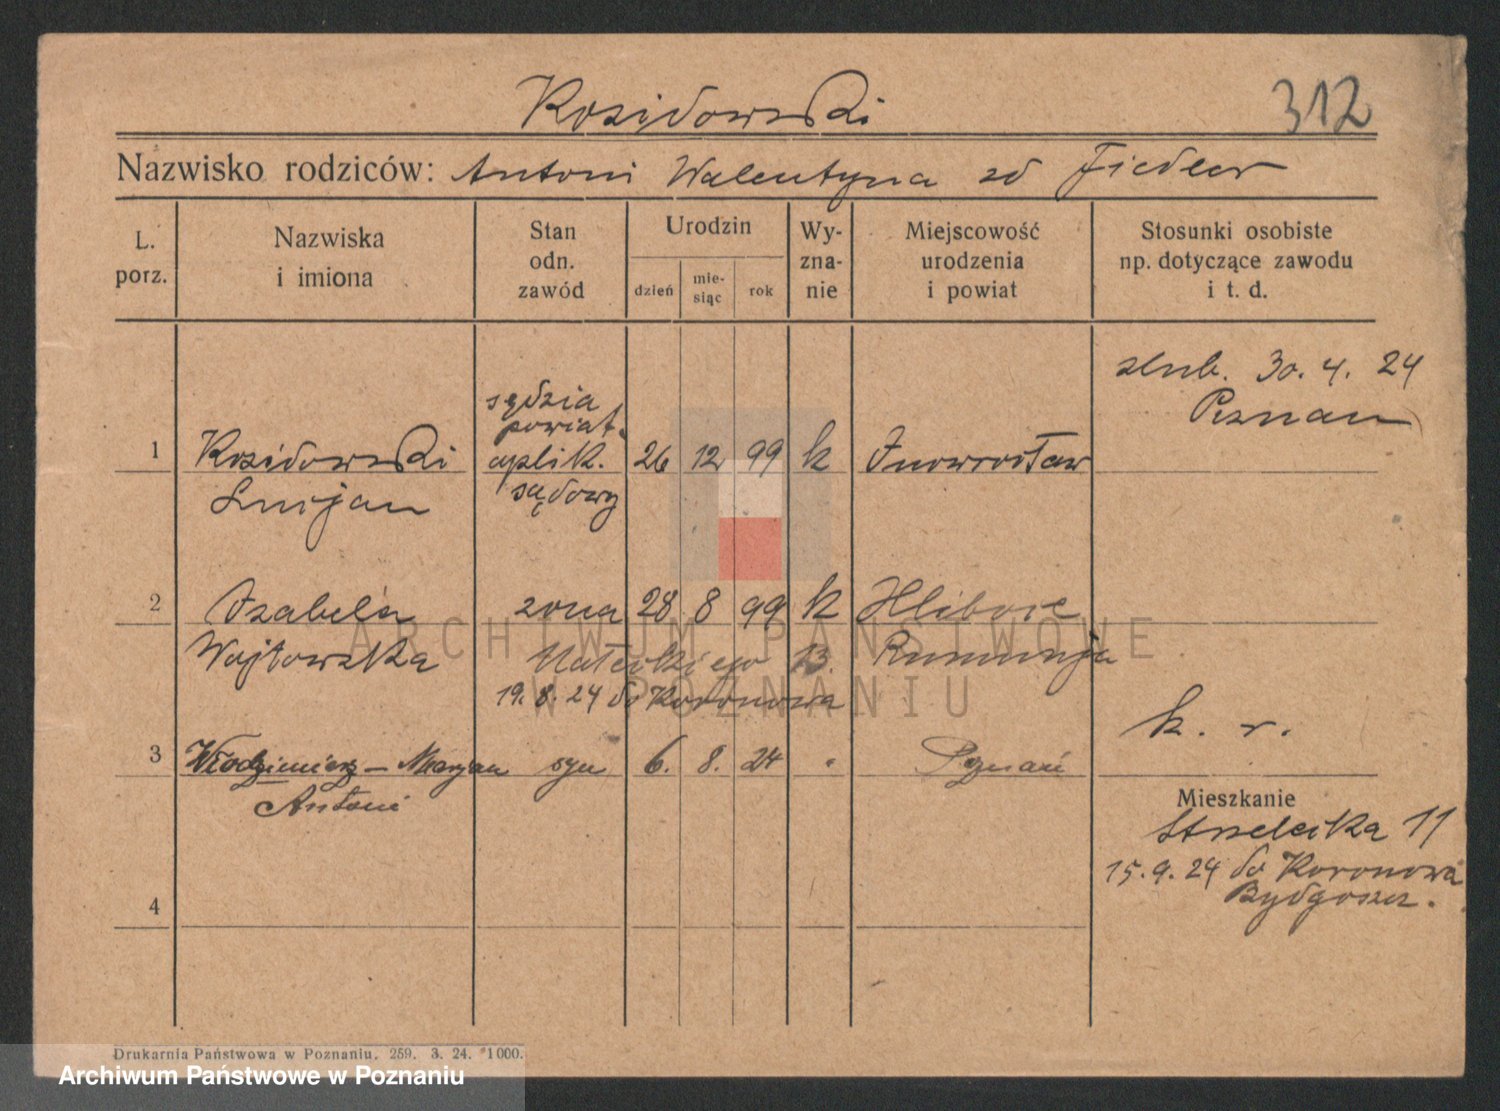 Kozidowski
312
Nazwisko rodziców: Antoni Walentyna zd Fiedler
L. porz.
Nazwiska i imiona
Stan odn. zawód
Urodzin
dzień
mie-siąc
rok
Wy-zna-nie
Miejscowość urodzenia i powiat
Stosunki osobiste np. dotyczące zawodu i t. d.
ślub. 30. 4. 24
Poznań
sędzia
powiat.
1 Kozidowski aplik. 26 12 99 k Inowrocław
Lucjan sądowy
2 Izabela żona 28 8 99 k Hliboce
Wojtowska 13. Rumunja
19. 8. 24 do Koronowa
k. r.
3 Włodzimierz - Marjan syn 6. 8. 24 " Poznań
Antoni
Mieszkanie
Strzelecka 11
15. 9. 24 do Koronowa
Bydgoszcz.
4
ARCHIWUM PAŃSTWOWE
W POZNANIU
Drukarnia Państwowa w Poznaniu. 259. 3. 24. 1000.
Archiwum Państwowe w Poznaniu